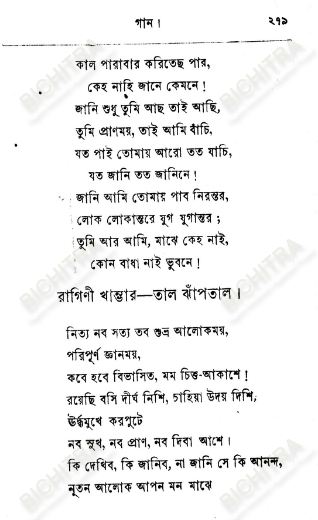 গান।
২৭৯
কাল পারাবার করিতেছ পার,
কেহ নাহি জানে কেমনে!
জানি শুধু তুমি আছ তাই আছি,
তুমি প্রাণময়, তাই আমি বাঁচি,
যত পাই তোমায় আরো তত যাচি,
যত জানি তত জানিনে!
জানি আমি তোমায় পাব নিরন্তর,
লোক লোকান্তরে যুগ যুগান্তর;
তুমি আর আমি, মাঝে কেহ নাই,
কোন বাধা নাই ভুবনে!
রাগিণী খাম্ভার—তাল ঝাঁপতাল।
নিত্য নব সত্য তব শুভ্র আলোকময়,
পরিপূর্ণ জ্ঞানময়,
কবে হবে বিভাসিত, মম চিত্ত-আকাশে!
রয়েছি বসি দীর্ঘ নিশি, চাহিয়া উদয় দিশি,
ঊর্দ্ধমুখে করপুটে
নব সুখ, নব প্রাণ, নব দিবা আশে।
কি দেখিব, কি জানিব, না জানি সে কি আনন্দ,
নূতন আলোক আপন মন মাঝে
BICHITRA